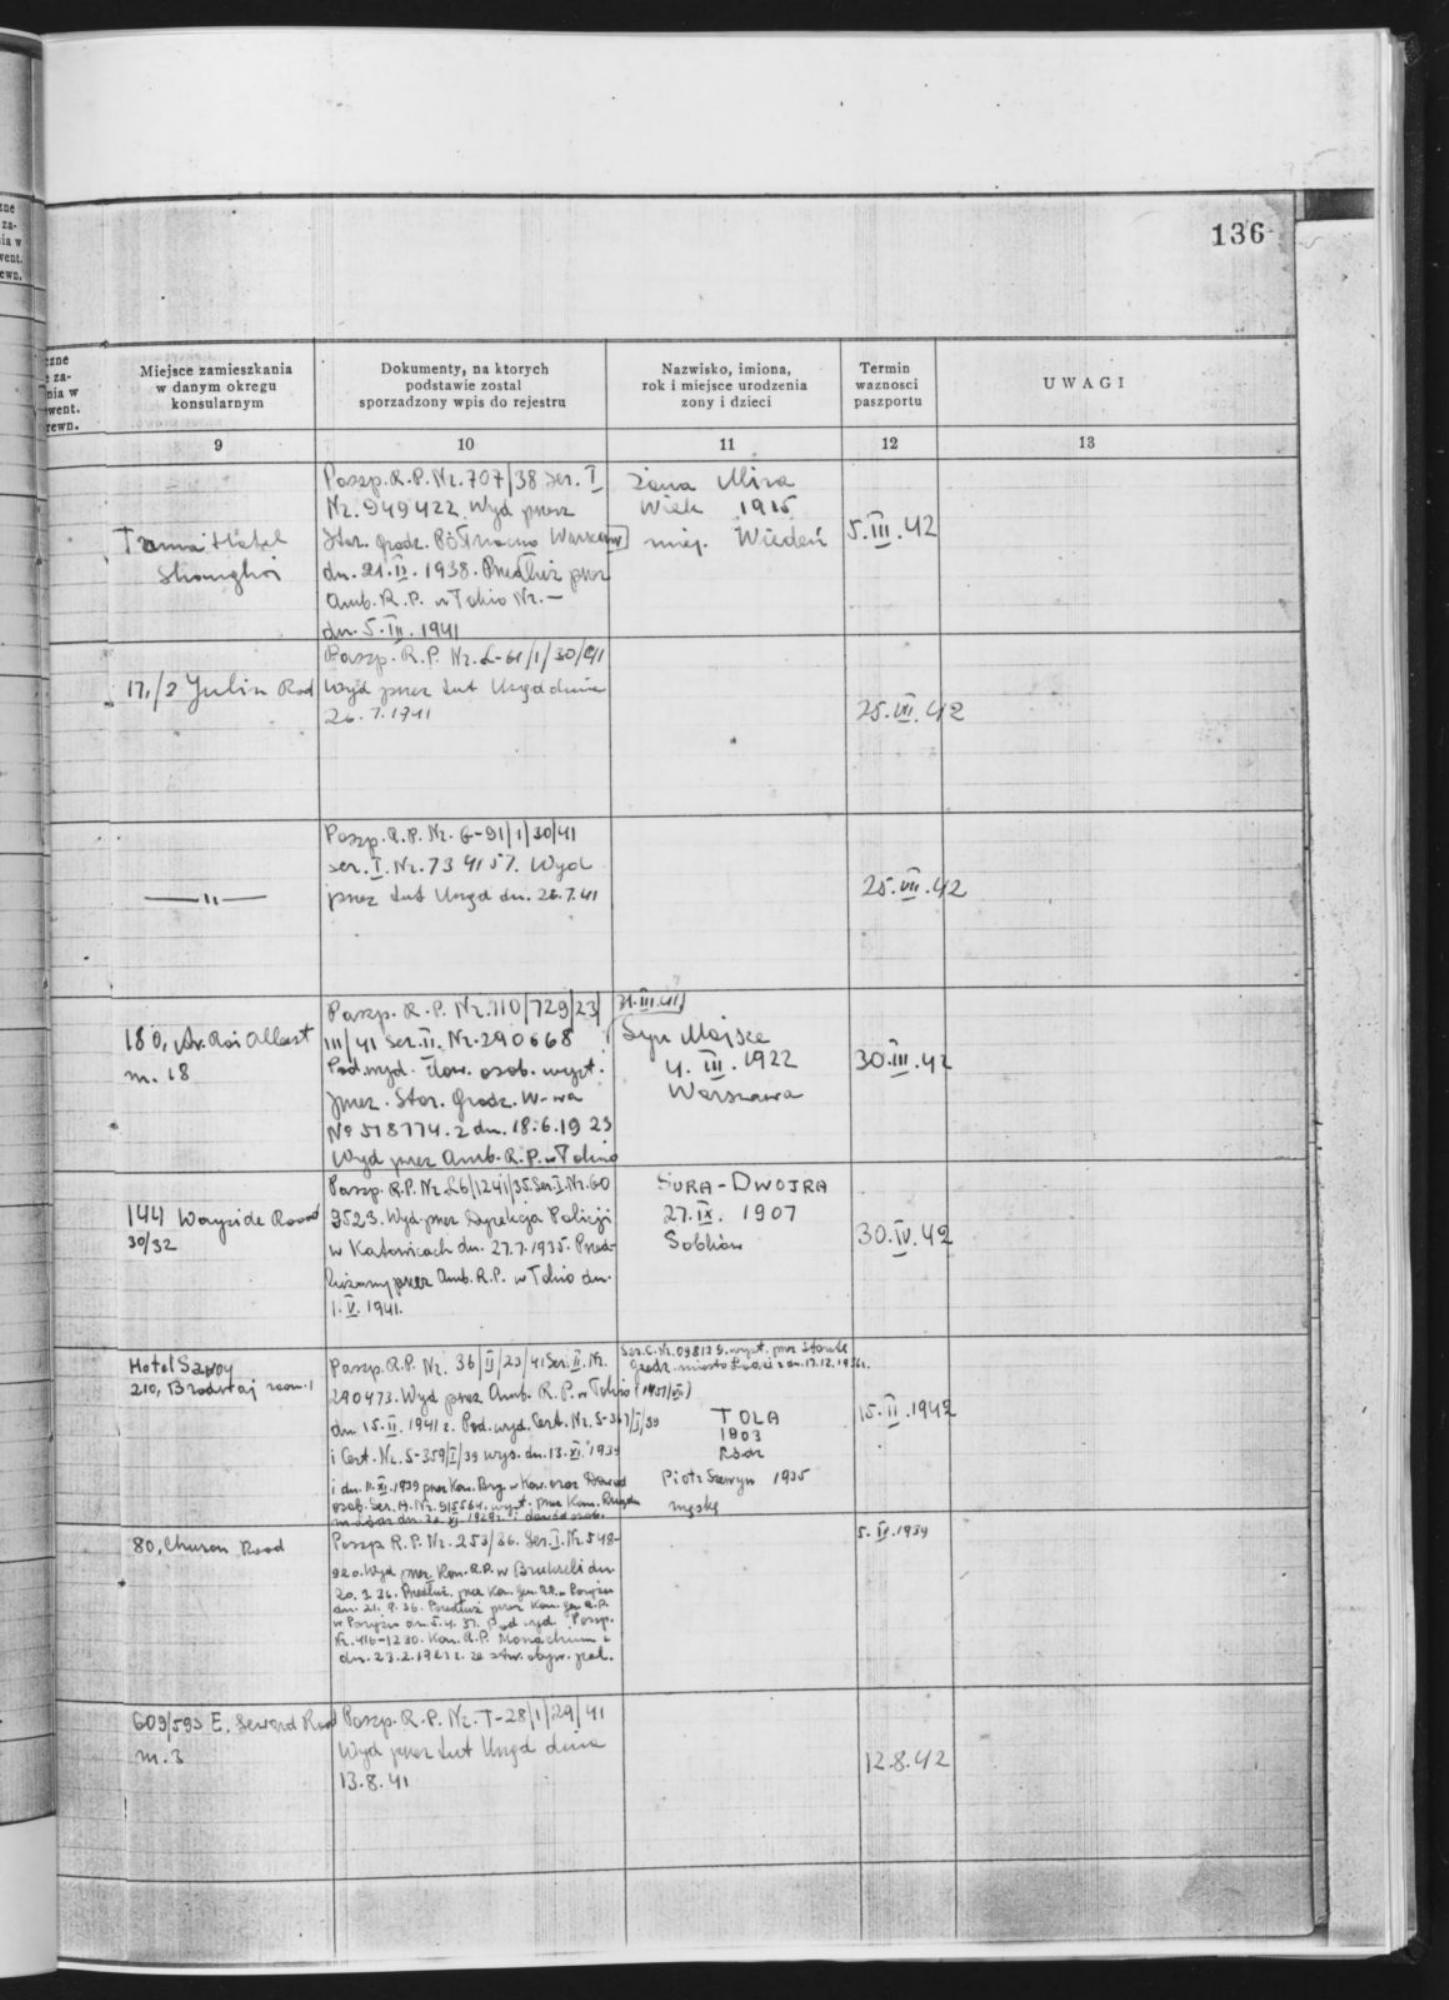 136
zne
za-
ia w
went.
ewn.
czne
za-
nia w
went.
rewn.
Miejsce zamieszkania
w danym okregu
konsularnym
Dokumenty, na ktorych
podstawie zostal
sporzadzony wpis do rejestru
Nazwisko, imiona,
rok i miejsce urodzenia
zony i dzieci
Termin
waznosci
paszportu
UWAGI
9
10
11
12
13
Hotel
Shanghai
Paszp. R.P. Nr. 707/38 Ser. I
Nr. 949422 Wyd przez
Star. Grodz. Północno Warszaw
dn. 21.II.1938. Przedłuż przez
Amb. R.P. w Tokio Nr. —
dn. 5.III.1941
żona Mira
Wiek 1915
miej. Wiedeń
5.III.42
17/2 Yulin Rod
Paszp. R.P. Nr. L-61/1/30/41
Wyd przez tut Urząd dnia
26.7.1941
25.VII.42
—— " ——
Paszp. R.P. Nr. G-91/1/30/41
ser. I. Nr. 734157. Wyd
przez tut Urząd dn. 26.7.41
25.VII.42
180, Av. Roi Albert
m. 18
Paszp. R.P. Nr. 110/729/23/
III/41 Ser. II. Nr. 290668
Pod. wyd. dow. osob. wyst.
przez Star. Grodz. W-wa
No 518774.2 dn. 18.6.1923
Wyd przez Amb. R.P. w Tokio
31.III.41
Syn Mojsze
4.III.1922
Warszawa
30.III.42
144 Wayside Road
30/32
Paszp. R.P. Nr L6/1241/35. Ser. I. Nr. 60
9523. Wyd przez Dyrekcja Policji
w Katowicach dn. 27.7.1935. Przed-
łużamy przez Amb. R.P. w Tokio dn.
1.V.1941.
SURA-DWOJRA
27.IX. 1907
Sobków
30.IV.42
Hotel Savoy
210, Brodwaj room. 1
Paszp. R.P. Nr. 36/II/23/41 Ser. II. Nr.
290473. Wyd przez Amb. R.P. w Tokio
dn 15.II.1941 r. Pod. wyd. Cert. Nr. S-367/I/39
i Cert. Nr. S-359/I/39 wys. dn. 13.XI.1939
i dn. 11.XI.1939 przez Kon. Bryt. w Kow. oraz Dowód
osob. Ser. A. Nr. 915564. wyst. przez Kom. Rządu
Ser. C. Nr. 098129. wyst. prez Starostę
Grodz. miasto Łodzi z dn. 17.12.1936r.
TOLA
1903
Piotr Seweryn 1935
męska
15.II.1942
80, Chusan Road
Paszp R.P. Nr. 253/36. Ser. I. Nr. 548-
920. Wyd przez Kon. R.P. w Brukseli dn
20.3.36. Przedłuż. prez Kon. Gen. R.P. w Paryżu
dn. 21.9.36. Przedłuż prez Kon. Gen. R.P.
w Paryżu dn. 5.4.37. Pod wyd Paszp.
Nr. 416-1230. Kon. R.P. Monachium z
5.IV.1939
609/593 E. Seward Road
m. 3
Paszp. R.P. Nr. T-28/1/29/41
Wyd przez tut Urząd dnia
13.8.41
12.8.42